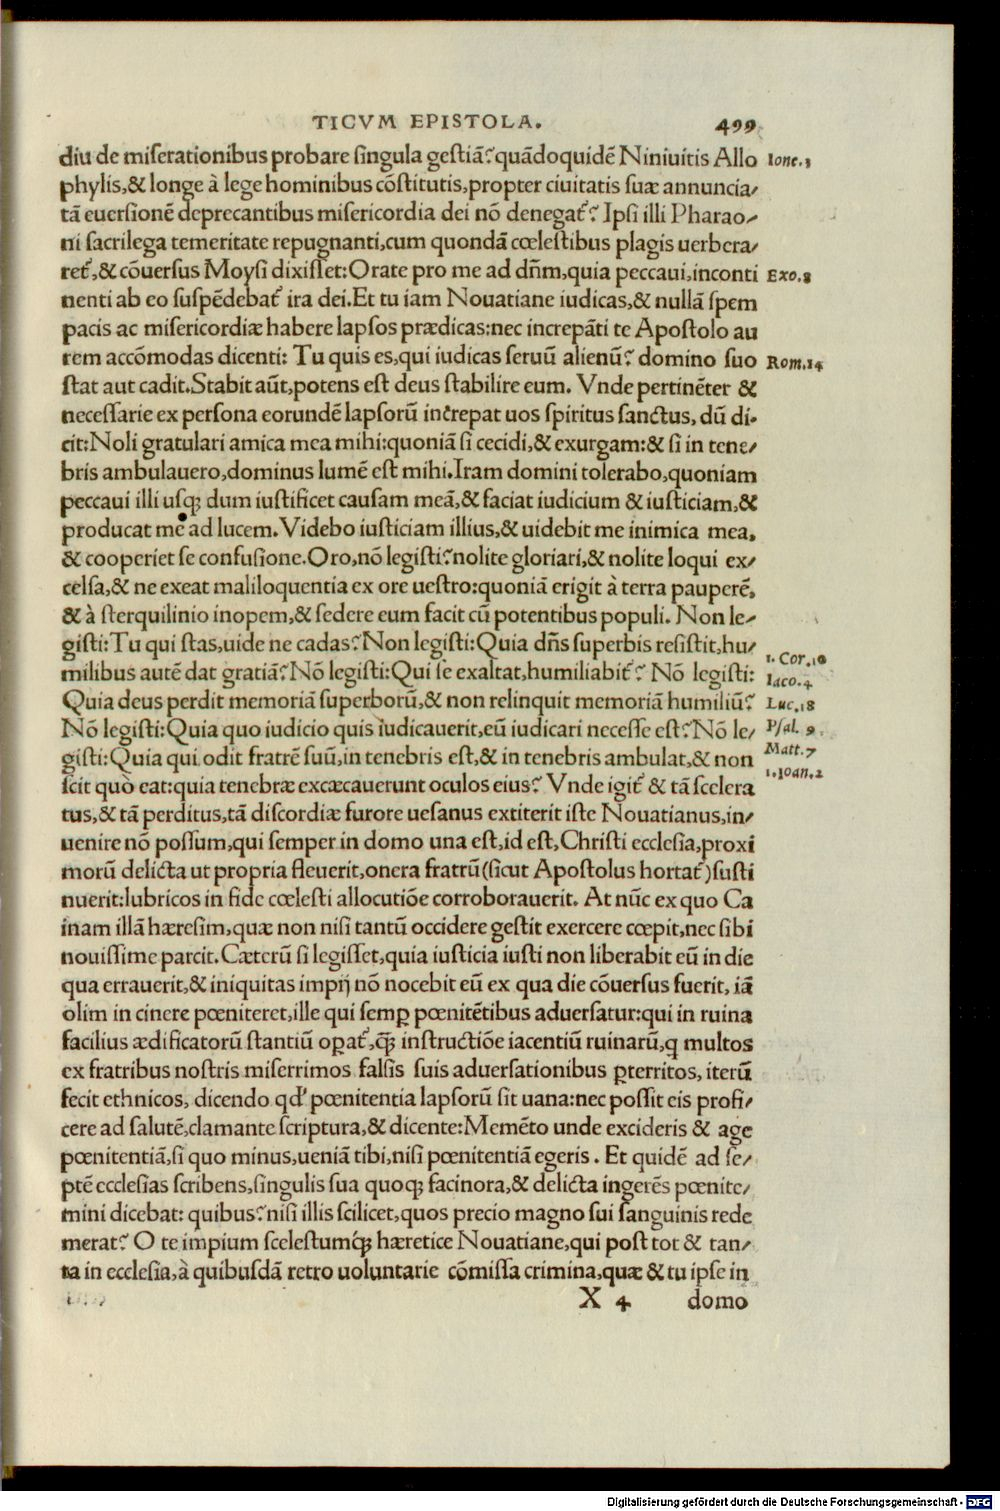 TICVM EPISTOLA. 499
diu de miserationibus probare singula gestiā? quādoquidē Niniuitis Allo Ione.3
phylis, & longe à lege hominibus cōstitutis, propter ciuitatis suæ annuncia/
tā euersionē deprecantibus misericordia dei nō denegat̃? Ipsi illi Pharao/
ni sacrilega temeritate repugnanti, cum quondā cœlestibus plagis uerbera/
ret̃, & cōuersus Moysi dixisset: Orate pro me ad dñm, quia peccaui, inconti Exo.8
nenti ab eo suspēdebat̃ ira dei. Et tu iam Nouatiane iudicas, & nullā spem
pacis ac misericordiæ habere lapsos prædicas: nec increpāti te Apostolo au
rem accōmodas dicenti: Tu quis es, qui iudicas seruū alienū? domino suo Rom.14
stat aut cadit. Stabit aūt, potens est deus stabilire eum. Vnde pertinēter &
necessarie ex persona eorundē lapsorū increpat uos spiritus sanctus, dū di-
cit: Noli gratulari amica mea mihi: quoniā si cecidi, & exurgam: & si in tene/
bris ambulauero, dominus lumē est mihi. Iram domini tolerabo, quoniam
peccaui illi usq; dum iustificet causam meā, & faciat iudicium & iusticiam, &
producat mē ad lucem. Videbo iusticiam illius, & uidebit me inimica mea,
& cooperiet se confusione. Oro, nō legisti? nolite gloriari, & nolite loqui ex/
celsa, & ne exeat maliloquentia ex ore uestro: quoniā erigit à terra pauperē,
& à sterquilinio inopem, & sedere eum facit cū potentibus populi. Non le/
gisti: Tu qui stas, uide ne cadas? Non legisti: Quia dñs superbis resistit, hu/
1. Cor.10
milibus autē dat gratiā? Nō legisti: Qui se exaltat, humiliabit̃? Nō legisti: Iaco.4
Quia deus perdit memoriā superborū, & non relinquit memoriā humiliū? Luc.18
Nō legisti: Quia quo iudicio quis iudicauerit, eū iudicari necesse est? Nō le/ Psal. 9.
Matt.7
gisti: Quia qui odit fratrē suū, in tenebris est, & in tenebris ambulat, & non
1. Ioan.2
scit quò eat: quia tenebræ excæcauerunt oculos eius? Vnde igit̃ & tā scelera
tus, & tā perditus, tā discordiæ furore uesanus extiterit iste Nouatianus, in/
uenire nō possum, qui semper in domo una est, id est, Christi ecclesia, proxi
morū delicta ut propria fleuerit, onera fratrū (sicut Apostolus hortat̃) susti
nuerit: lubricos in fide cœlesti allocutiōe corroborauerit. At nūc ex quo Ca
inam illā hæresim, quæ non nisi tantū occidere gestit exercere cœpit, nec sibi
nouissime parcit. Cæterū si legisset, quia iusticia iusti non liberabit eū in die
qua errauerit, & iniquitas impij nō nocebit eū ex qua die cōuersus fuerit, iā
olim in cinere pœniteret, ille qui semꝑ pœnitētibus aduersatur: qui in ruina
facilius ædificatorū stantiū oꝑat̃, q̃; instructiōe iacentiū ruinarū, q multos
ex fratribus nostris miserrimos falsis suis aduersationibus ꝑterritos, iterū
fecit ethnicos, dicendo qd' pœnitentia lapsorū sit uana: nec possit eis profi/
cere ad salutē, clamante scriptura, & dicente: Memēto unde excideris & age
pœnitentiā, si quo minus, ueniā tibi, nisi pœnitentiā egeris. Et quidē ad se/
ptē ecclesias scribens, singulis sua quoq; facinora, & delicta ingerēs pœnite/
mini dicebat: quibus? nisi illis scilicet, quos precio magno sui sanguinis rede
merat? O te impium scelestumq́; hæretice Nouatiane, qui post tot & tan/
ta in ecclesia, à quibusdā retro uoluntarie cōmissa crimina, quæ & tu ipse in
X 4 domo
Digitalisierung gefördert durch die Deutsche Forschungsgemeinschaft - DFG